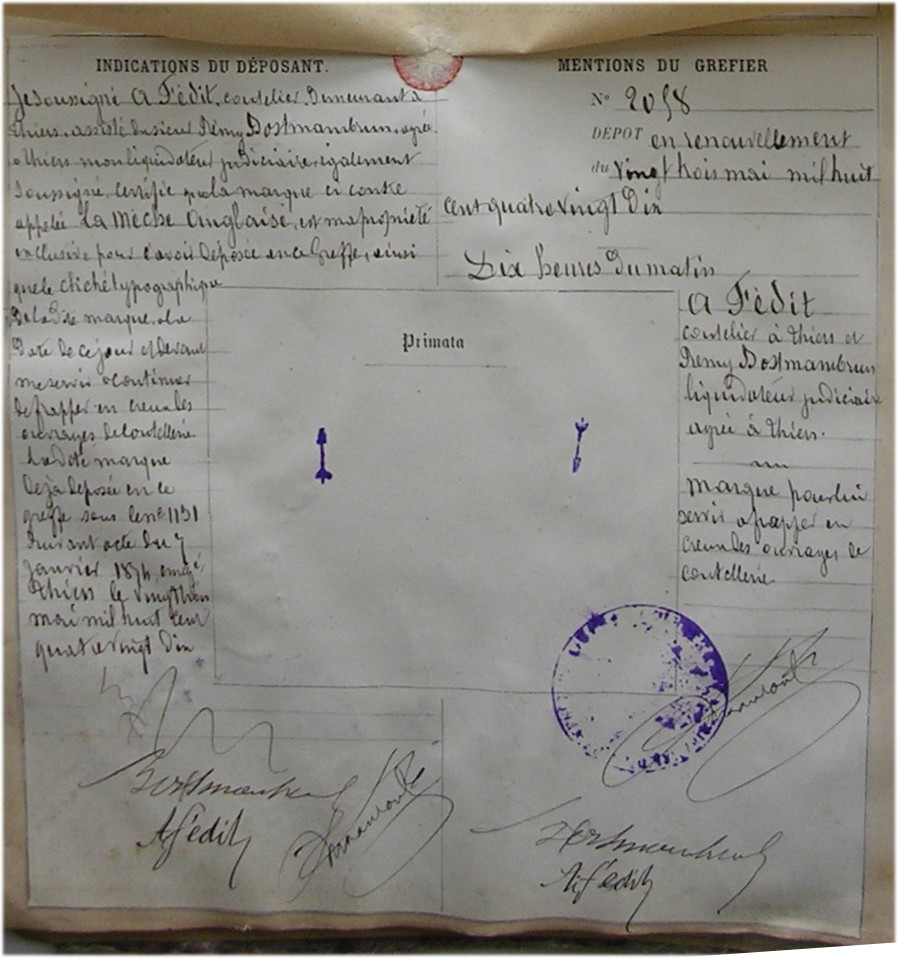 INDICATIONS DU DÉPOSANT.
Je soussigné A Fédit, coutelier, demeurant à
Thiers, assisté du sieur Rémy Dostmambrun, agréé
à Thiers mon liquidateur judiciaire, également
soussigné, certifie que la marque ci contre
appelée La Mèche Anglaise, est ma propriété
exclusive pour l'avoir déposée en ce Greffe, ainsi
que le cliché typographique
de la dite marque, à la
date de ce jour et devant
me servir à continuer
de frapper en creux les
ouvrages de coutellerie
La dite marque
déjà déposée en ce
greffe sous le n° 1131
suivant acte du 7
janvier 1874,
Thiers le vingt trois
mai mil huit cent
quatre vingt dix
A Fédit
MENTIONS DU GREFIER
N° 2058
DÉPOT en renouvellement
du vingt trois mai mil huit
cent quatre vingt dix
Dix heures du matin
A Fédit
coutelier à Thiers et
Rémy Dostmambrun
liquidateur judiciaire
agréé à Thiers.
marque pour lui
servir à frapper en
creux les ouvrages de
coutellerie
Primata
A Fédit